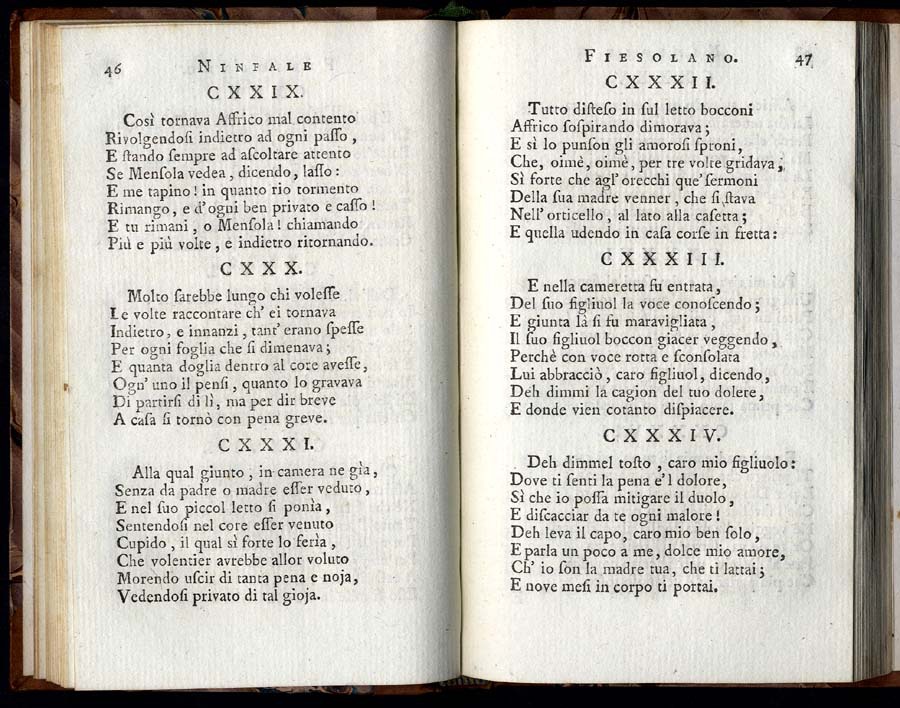 46 NINFALE
CXXIX.
Così tornava Affrico mal contento
Rivolgendoſi indietro ad ogni paſſo,
E ſtando ſempre ad aſcoltare attento
Se Menſola vedea, dicendo, laſſo:
E me tapino! in quanto rio tormento
Rimango, e d'ogni ben privato e caſſo!
E tu rimani, o Menſola! chiamando
Più e più volte, e indietro ritornando.
CXXX.
Molto ſarebbe lungo chi voleſſe
Le volte raccontare ch' ei tornava
Indietro, e innanzi, tant' erano ſpeſſe
Per ogni foglia che ſi dimenava;
E quanta doglia dentro al core aveſſe,
Ogn' uno il penſi, quanto lo gravava
Di partirſi di lì, ma per dir breve
A caſa ſi tornò con pena greve.
CXXXI.
Alla qual giunto, in camera ne gìa,
Senza da padre o madre eſſer veduto,
E nel ſuo piccol letto ſi ponìa,
Sentendoſi nel core eſſer venuto
Cupido, il qual sì forte lo ferìa,
Che volentier avrebbe allor voluto
Morendo uſcir di tanta pena e noja,
Vedendoſi privato di tal gioja.
FIESOLANO. 47
CXXXII.
Tutto diſteſo in ſul letto bocconi
Affrico ſoſpirando dimorava;
E sì lo punſon gli amoroſi ſproni,
Che, oimè, oimè, per tre volte gridava,
Sì forte che agl' orecchi que' ſermoni
Della ſua madre venner, che ſi ſtava
Nell' orticello, al lato alla caſetta;
E quella udendo in caſa corſe in fretta:
CXXXIII.
E nella cameretta fu entrata,
Del ſuo figliuol la voce conoſcendo;
E giunta là ſi fu maravigliata,
Il ſuo figliuol boccon giacer veggendo,
Perchè con voce rotta e ſconſolata
Lui abbracciò, caro figliuol, dicendo,
Deh dimmi la cagion del tuo dolere,
E donde vien cotanto diſpiacere.
CXXXIV.
Deh dimmel toſto, caro mio figliuolo:
Dove ti ſenti la pena e'l dolore,
Sì che io poſſa mitigare il duolo,
E diſcacciar da te ogni malore!
Deh leva il capo, caro mio ben ſolo,
E parla un poco a me, dolce mio amore,
Ch' io ſon la madre tua, che ti lattai;
E nove meſi in corpo ti portai.